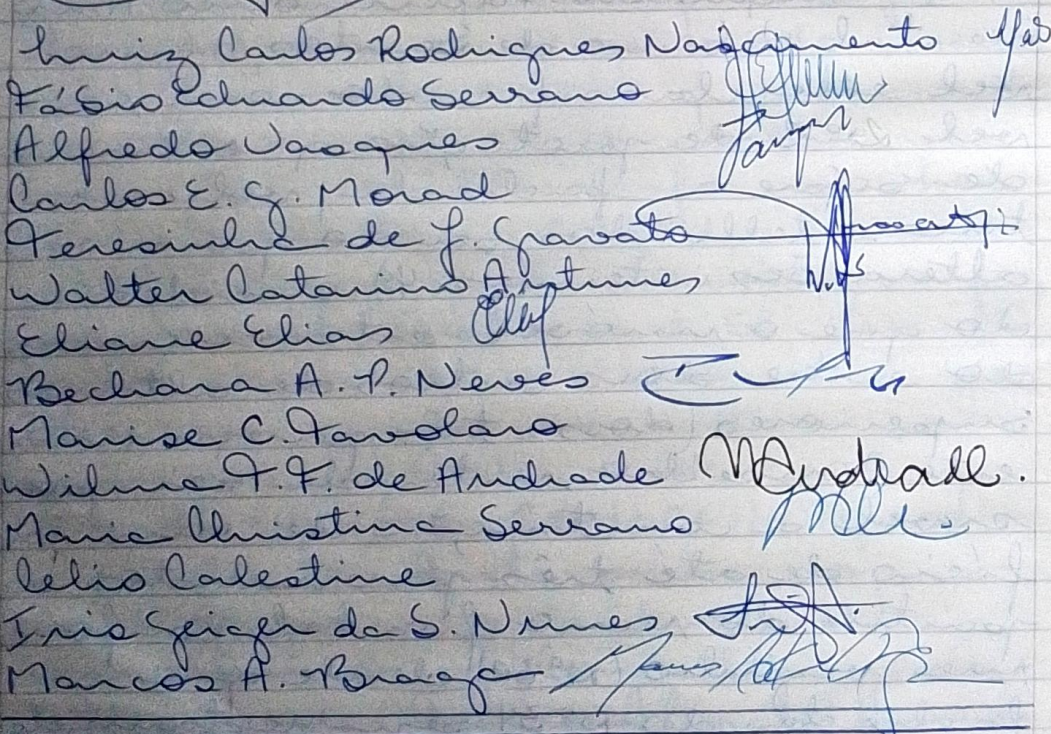 Luiz Carlos Rodrigues Nascimento
Fábio Eduardo Serrano
Alfredo Vasques
Carlos E. G. Morad
Teresinha de J. Gravato
Walter Catarino Antunes
Eliane Elias
Bechara A. P. Neves
Marise C. Tavolaro
Wilma T. F. de Andrade WAndrade.
Maria Christina Serrano
Célio Calestine
Iris Geiger da S. Nunes
Marcos A. Braga